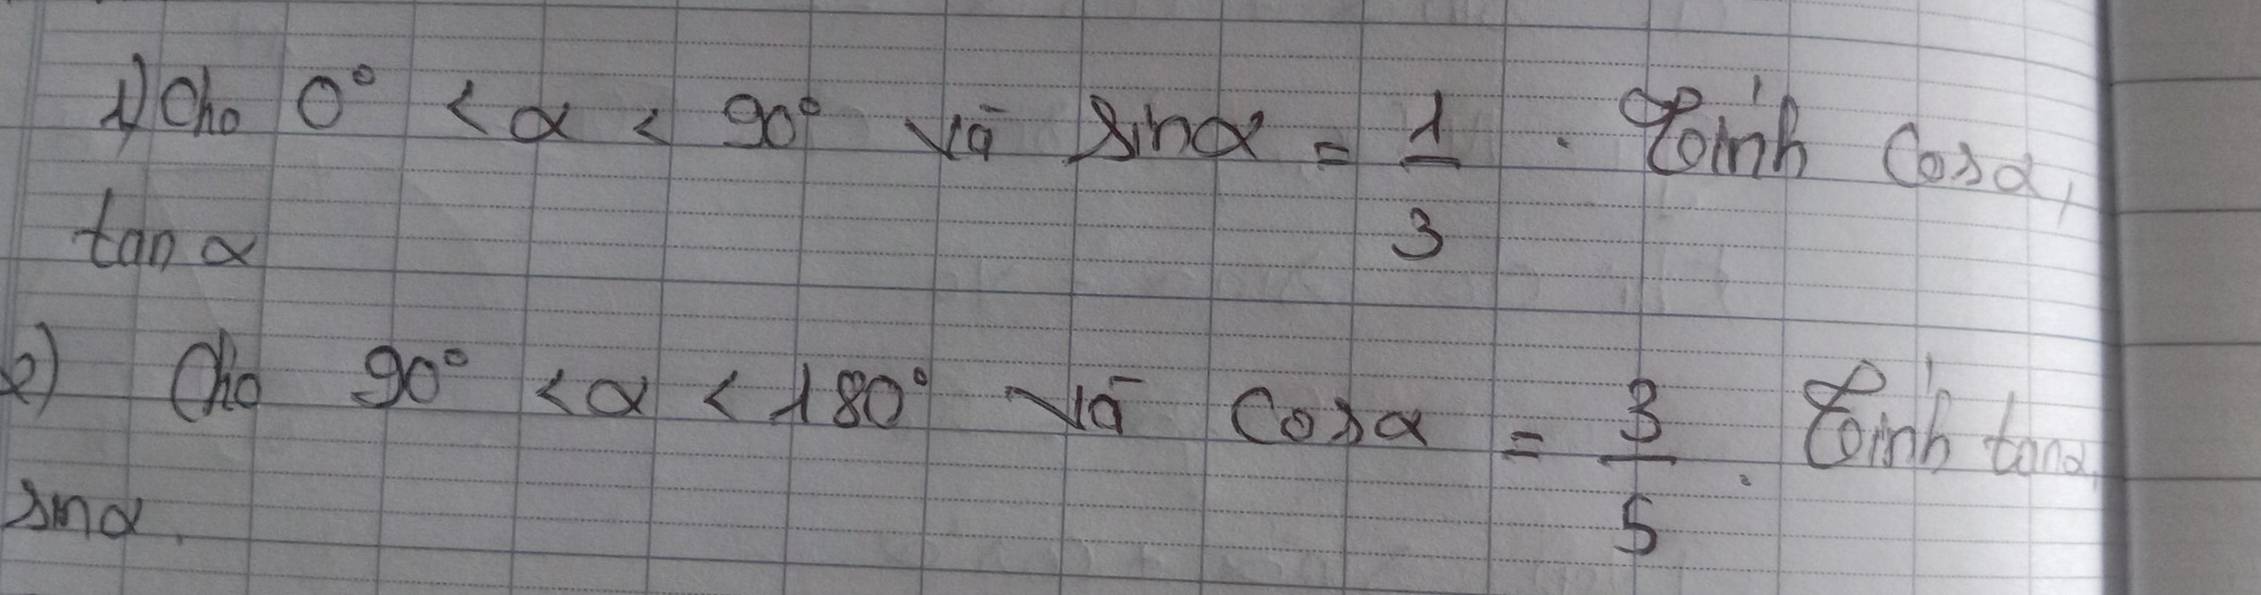 1) Cho 0° < α < 90° và sinα = 1/3. Tính cosα,
tan α
2) Cho 90° < α < 180° và cosα = 3/5. Tính tanα,
sinα.